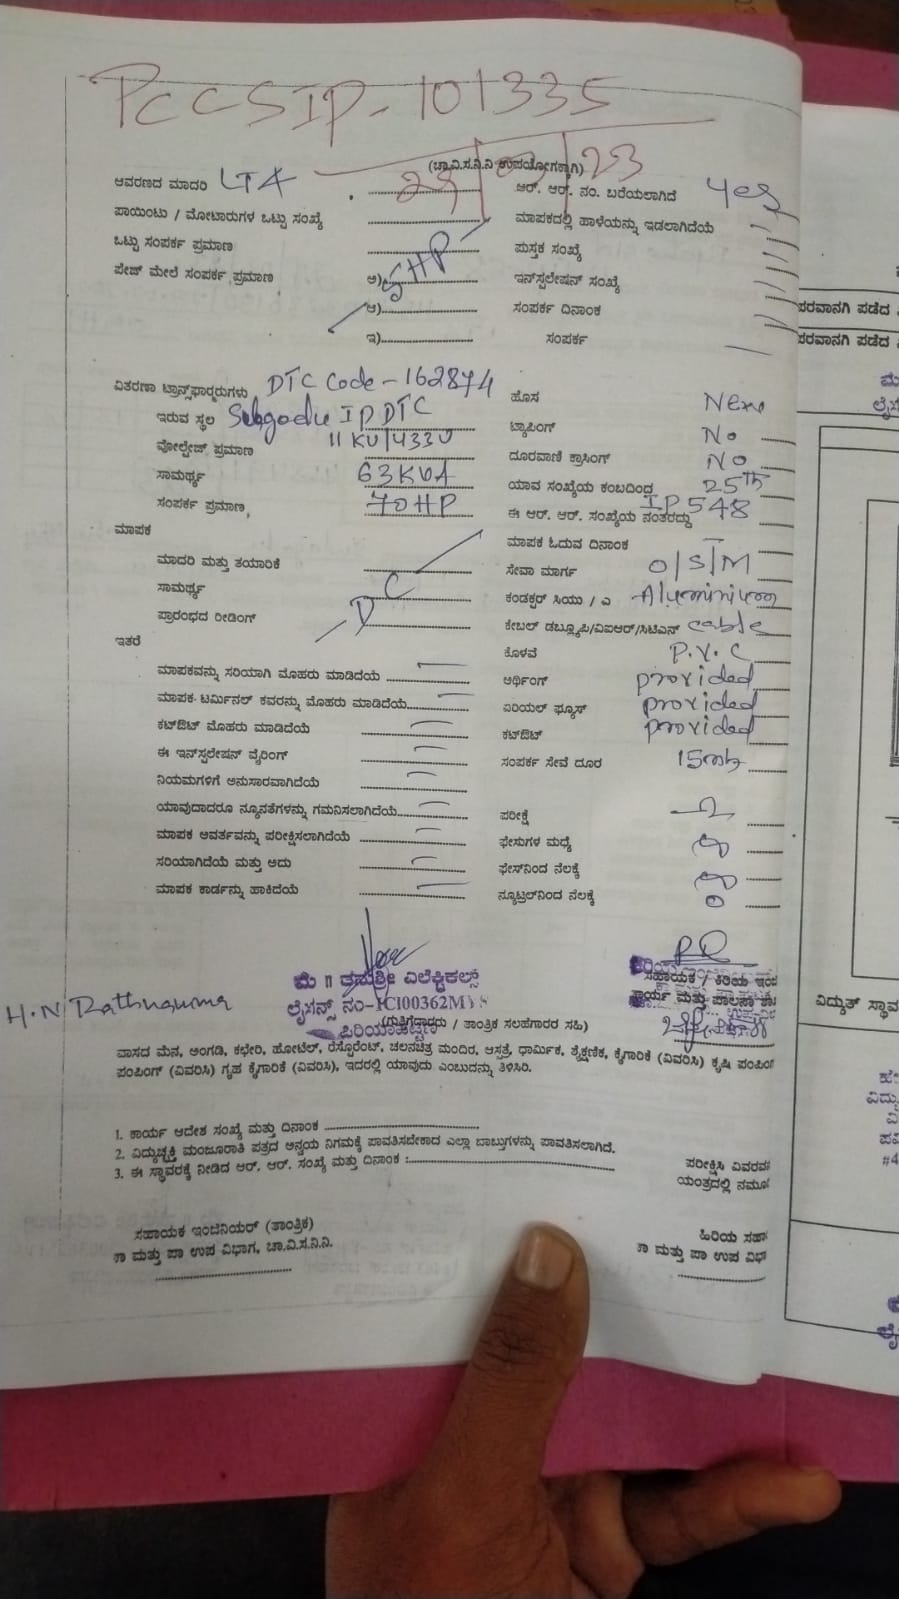 PCCSIP-101335
(ಚಾ.ವಿ.ಸ.ನಿ.ನಿ ಉಪಯೋಗಕ್ಕಾಗಿ)
ಆವರಣದ ಮಾದರಿ LT4 ಆರ್. ಆರ್. ನಂ. ಬರೆಯಲಾಗಿದೆ Yes
ಪಾಯಿಂಟು / ಮೋಟಾರುಗಳ ಒಟ್ಟು ಸಂಖ್ಯೆ ಮಾಪಕದಲ್ಲಿ ಹಾಳೆಯನ್ನು ಇಡಲಾಗಿದೆಯೆ
ಒಟ್ಟು ಸಂಪರ್ಕ ಪ್ರಮಾಣ ಪುಸ್ತಕ ಸಂಖ್ಯೆ
ಪೇಜ್ ಮೇಲೆ ಸಂಪರ್ಕ ಪ್ರಮಾಣ ಅ) 5HP ಇನ್‌ಸ್ಟಲೇಷನ್ ಸಂಖ್ಯೆ
ಆ) ಸಂಪರ್ಕ ದಿನಾಂಕ
ಇ) ಸಂಪರ್ಕ
ವಿತರಣಾ ಟ್ರಾನ್ಸ್‌ಫಾರ್‍ಮರುಗಳು DTC Code - 162874 ಹೊಸ New
ಇರುವ ಸ್ಥಲ IP DTC ಟ್ಯಾಪಿಂಗ್ No
ವೋಲ್ಟೇಜ್ ಪ್ರಮಾಣ 11 KV/433V ದೂರವಾಣಿ ಕ್ರಾಸಿಂಗ್ No
ಸಾಮರ್ಥ್ಯ 63KVA ಯಾವ ಸಂಖ್ಯೆಯ ಕಂಬದಿಂದ 25th
ಸಂಪರ್ಕ ಪ್ರಮಾಣ 70HP ಈ ಆರ್. ಆರ್. ಸಂಖ್ಯೆಯ ನಂತರದ್ದು IP548
ಮಾಪಕ ಮಾಪಕ ಓದುವ ದಿನಾಂಕ
ಮಾದರಿ ಮತ್ತು ತಯಾರಿಕೆ ಸೇವಾ ಮಾರ್ಗ O/S/M
ಸಾಮರ್ಥ್ಯ DC ಕಂಡಕ್ಟರ್ ಸಿಯು / ಎ Aluminium
ಪ್ರಾರಂಭದ ರೀಡಿಂಗ್ ಕೇಬಲ್ ಡಬ್ಲ್ಯೂಪಿ/ವಿಐಆರ್/ಸಿಟಿಎಸ್ cable
ಇತರೆ ಕೊಳವೆ P.V.C
ಮಾಪಕವನ್ನು ಸರಿಯಾಗಿ ಮೊಹರು ಮಾಡಿದೆಯೆ ಅರ್ಥಿಂಗ್ provided
ಮಾಪಕ ಟರ್ಮಿನಲ್ ಕವರನ್ನು ಮೊಹರು ಮಾಡಿದೆಯೆ ಏರಿಯಲ್ ಫ್ಯೂಸ್ provided
ಕಟ್‌ಔಟ್ ಮೊಹರು ಮಾಡಿದೆಯೆ ಕಟ್‌ಔಟ್ provided
ಈ ಇನ್‌ಸ್ಟಲೇಷನ್ ವೈರಿಂಗ್ ಸಂಪರ್ಕ ಸೇವೆ ದೂರ 15mtr
ನಿಯಮಗಳಿಗೆ ಅನುಸಾರವಾಗಿದೆಯೆ
ಯಾವುದಾದರೂ ನ್ಯೂನತೆಗಳನ್ನು ಗಮನಿಸಲಾಗಿದೆಯೆ ಪರೀಕ್ಷೆ
ಮಾಪಕ ಆವರ್ತವನ್ನು ಪರೀಕ್ಷಿಸಲಾಗಿದೆಯೆ ಫೇಸುಗಳ ಮಧ್ಯೆ
ಸರಿಯಾಗಿದೆಯೆ ಮತ್ತು ಅದು ಫೇಸ್‌ನಿಂದ ನೆಲಕ್ಕೆ
ಮಾಪಕ ಕಾರ್ಡನ್ನು ಹಾಕಿದೆಯೆ ನ್ಯೂಟ್ರಲ್‌ನಿಂದ ನೆಲಕ್ಕೆ
ಮೆ ॥ ತನುಶ್ರೀ ಎಲೆಕ್ಟ್ರಿಕಲ್ಸ್ ಸಹಾಯಕ / ಕಿರಿಯ ಇಂಜ
H.N ಲೈಸನ್ಸ್ ನಂ- ಕಾರ್ಯ ಮತ್ತು ಪಾಲನಾ ಶಾ
(ಗುತ್ತಿಗೆದಾರರು / ತಾಂತ್ರಿಕ ಸಲಹೆಗಾರರ ಸಹಿ)
ಪಿರಿಯಾಪಟ್ಟಣ
ವಾಸದ ಮನೆ, ಅಂಗಡಿ, ಕಛೇರಿ, ಹೋಟೆಲ್, ರೆಸ್ಟೊರೆಂಟ್, ಚಲನಚಿತ್ರ ಮಂದಿರ, ಆಸ್ಪತ್ರೆ, ಧಾರ್ಮಿಕ, ಶೈಕ್ಷಣಿಕ, ಕೈಗಾರಿಕೆ (ವಿವರಿಸಿ) ಕೃಷಿ ಪಂಪಿಂಗ
ಪಂಪಿಂಗ್ (ವಿವರಿಸಿ) ಗೃಹ ಕೈಗಾರಿಕೆ (ವಿವರಿಸಿ), ಇದರಲ್ಲಿ ಯಾವುದು ಎಂಬುದನ್ನು ತಿಳಿಸಿರಿ.
1. ಕಾರ್ಯ ಆದೇಶ ಸಂಖ್ಯೆ ಮತ್ತು ದಿನಾಂಕ
2. ವಿದ್ಯುಚ್ಛಕ್ತಿ ಮಂಜೂರಾತಿ ಪತ್ರದ ಅನ್ವಯ ನಿಗಮಕ್ಕೆ ಪಾವತಿಸಬೇಕಾದ ಎಲ್ಲಾ ಬಾಬ್ತುಗಳನ್ನು ಪಾವತಿಸಲಾಗಿದೆ.
3. ಈ ಸ್ಥಾವರಕ್ಕೆ ನೀಡಿದ ಆರ್. ಆರ್. ಸಂಖ್ಯೆ ಮತ್ತು ದಿನಾಂಕ : ಪರೀಕ್ಷಿಸಿ ವಿವರವ
ಯಂತ್ರದಲ್ಲಿ ನಮೂ
ಸಹಾಯಕ ಇಂಜಿನಿಯರ್ (ತಾಂತ್ರಿಕ) ಹಿರಿಯ ಸಹಾ
ಕಾ ಮತ್ತು ಪಾ ಉಪ ವಿಭಾಗ, ಚಾ.ವಿ.ಸ.ನಿ.ನಿ. ಕಾ ಮತ್ತು ಪಾ ಉಪ ವಿಭ
ಪರವಾನಗಿ ಪಡೆದ
ಪರವಾನಗಿ ಪಡೆದ
ವಿದ್ಯುತ್ ಸ್ಥಾವ